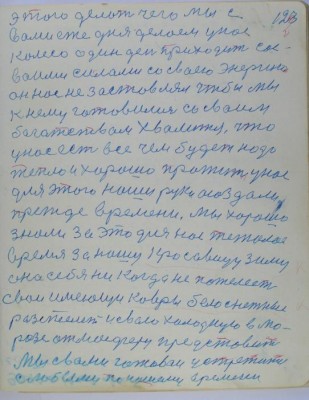 этого делат чего мы с 193
вами еже дня делаем у нас
колесо один ден приходит со
своими силами со своею Энергию
он нас не заставлял чтобы мы
к нему готовилися со своим
богатством хвалится, что
у нас ест все чем будет надо
тепло и хорошо прожит у нас
для этого наши руки создали
прежде времени, мы хорошо
знали за это для нас тяжолое
время за нашу красавицу зиму
она себя ни когда не пожелеет
свои имеющи ковры белоснежные
разстелит и свою холодную в мо-
розе атмосферу представит
Мы с вами готовы встретить